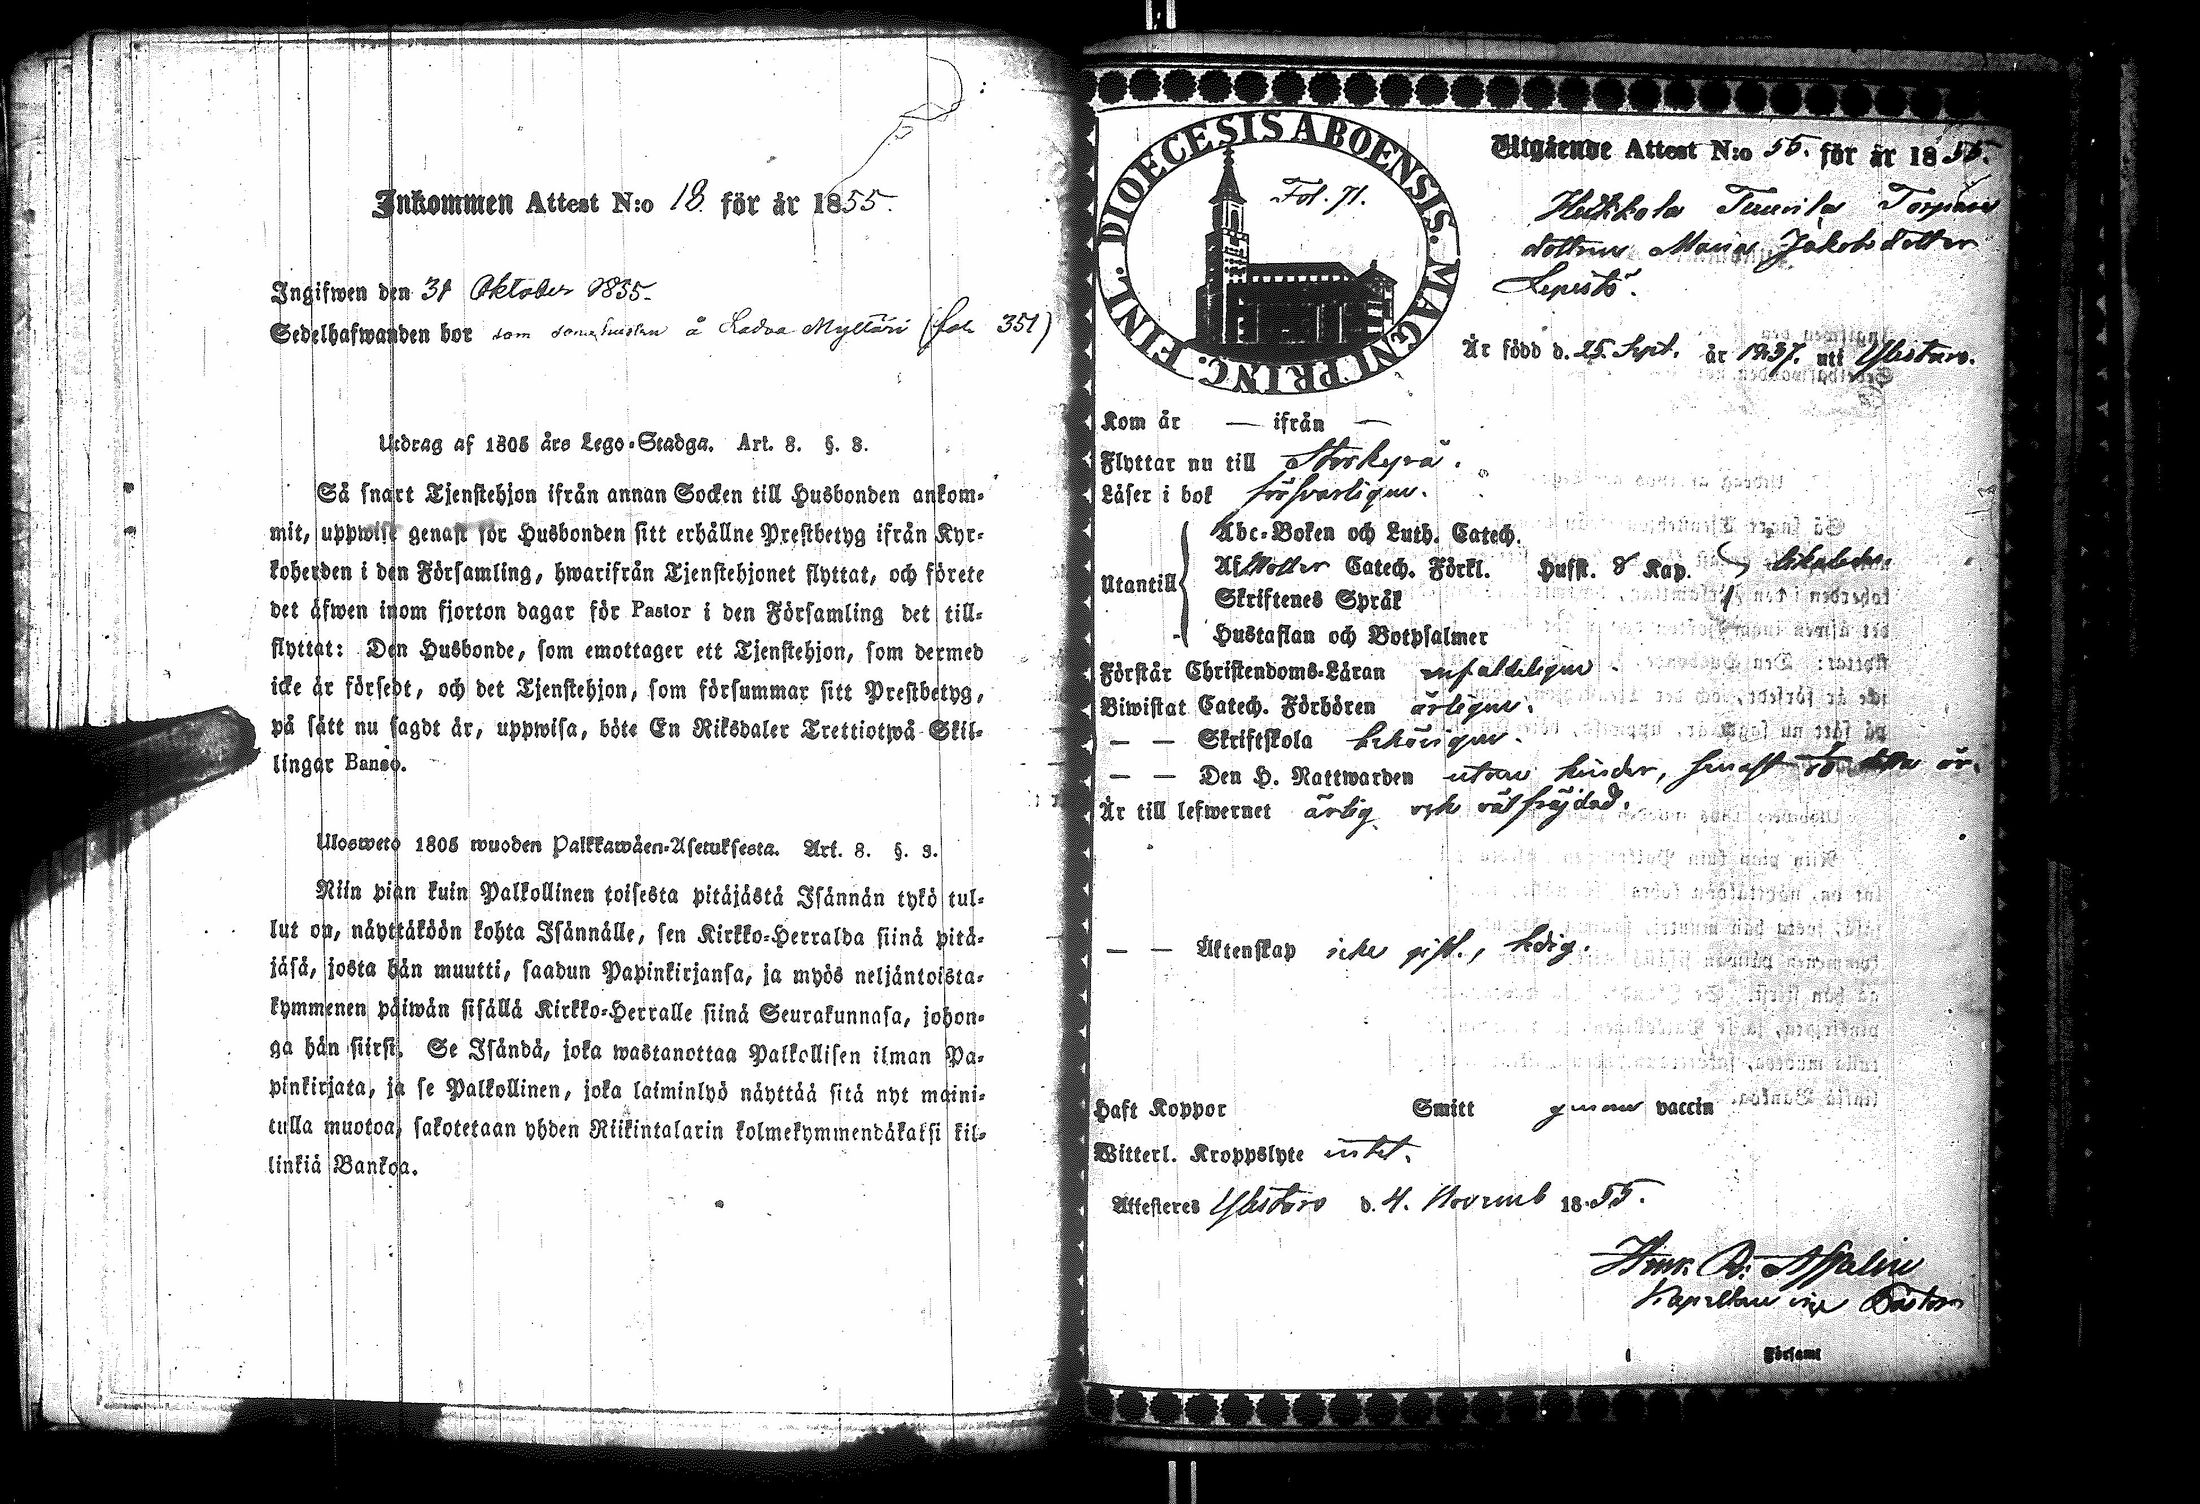 Inkommen Attest N:o 18. för år 1855.
Ingifwen den 31 Oktober 1855.
Sedelhafwanden bor som å Ladva Mylläri (fol. 351)
Utdrag af 1805 års Lego-Stadga. Art. 8. §. 8.
Så snart Tjenstehjon ifrån annan Socken till Husbonden ankom-
mit, uppwise genast för Husbonden sitt erhållne Prestbetyg ifrån Kyr-
koherden i den Församling, hwarifrån Tjenstehjonet flyttat, och förete
det äfwen inom fjorton dagar för Pastor i den Församling det till-
flyttat: Den Husbonde, som emottager ett Tjenstehjon, som dermed
icke är försedt, och det Tjenstehjon, som försummar sitt Prestbetyg,
på sätt nu sagdt är, uppwisa, böte En Riksdaler Trettiotwå Skil-
lingar Banco.
Ulosweto 1805 wuoden Palkkawäen-Asetuksesta. Art. 8. §. 8.
Niin pian kuin Palkollinen toisesta pitäjästä Isännän tykö tul-
lut on, näyttäköön kohta Isännälle, sen Kirkko-Herralda siinä pitä-
jäsä, josta hän muutti, saadun Papinkirjansa, ja myös neljäntoista-
kymmenen päiwän sisällä Kirkko-Herralle siinä Seurakunnasa, johon-
ga hän siirsi. Se Isändä, joka wastanottaa Palkollisen ilman Pa-
pinkirjata, ja se Palkollinen, joka laiminlyö näyttää sitä nyt maini-
tulla muotoa, sakotetaan yhden Riikintalarin kolmekymmendäkaksi kil-
linkiä Bankoa.
DIOECESIS ABOENSIS. MAGNI PRINC. FINL.
Fol. 71.
Utgående Attest N:o 55. för år 1855.
Heikkola Tuurila Torpare
dottren Maria Jakobsdotter
Lepistö.
Är född d. 25. Sept. år 1837. uti Ylistaro.
Kom år — ifrån —
Flyttar nu till Storkyrö.
Läser i bok försvarligen.
Utantill
Abc-Boken och Luth. Catech.
Af Möller Catech. Förkl. Hufst. & Kap. likaledes.
Skriftenes Språk
Hustaflan och Botpsalmer
Förstår Christendoms-Läran enfaldeligen
Biwistat Catech. Förhören årligen.
— — Skriftskola behörigen.
— — Den H. Nattwarden utan hinder, senast detta år.
Är till lefwernet ärlig och välfräjdad.
— — Äktenskap icke gift, ledig.
Haft Koppor Smitt genom vaccin
Witterl. Kroppslyte intet.
Attesteras Ylistaro d. 4. Novemb 1855.
Kapellan Pastor
Församl